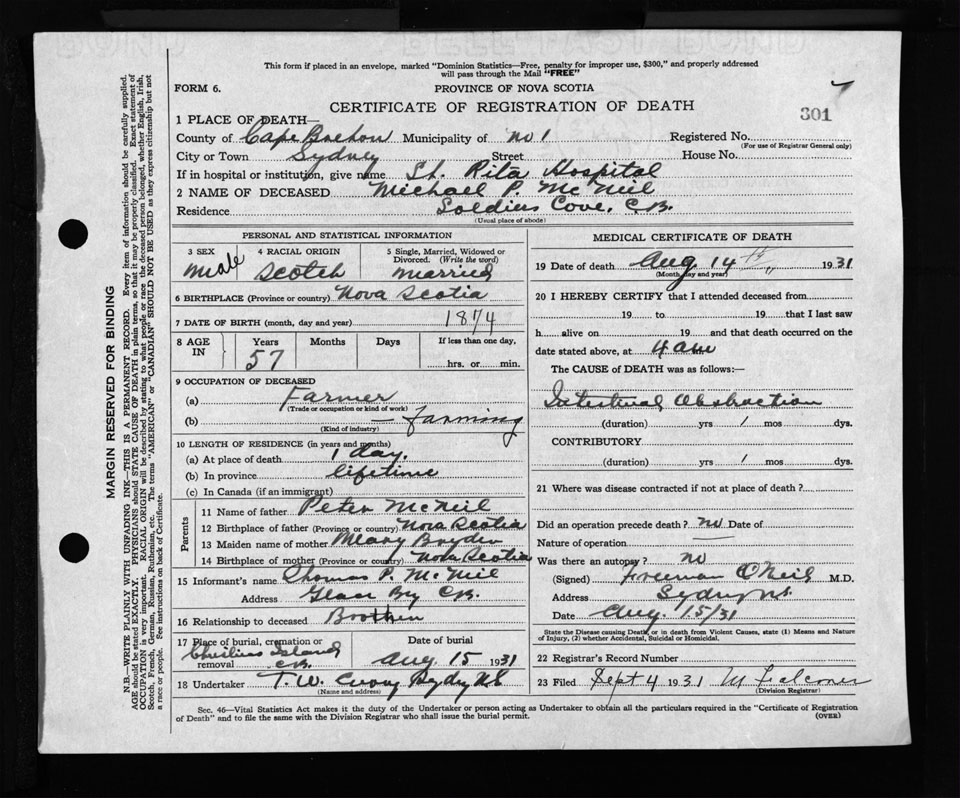 BOND BELL FAST BOND
This form if placed in an envelope, marked "Dominion Statistics—Free, penalty for improper use, $300," and properly addressed
will pass through the Mail "FREE"
FORM 6.
PROVINCE OF NOVA SCOTIA
CERTIFICATE OF REGISTRATION OF DEATH
301
1 PLACE OF DEATH—
County of Cape Breton Municipality of No 1 Registered No.
(For use of Registrar General only)
City or Town Sydney Street House No.
If in hospital or institution, give name St. Rita Hospital
2 NAME OF DECEASED Michael P. McNeil
Residence Soldiers Cove, C.B.
(Usual place of abode)
PERSONAL AND STATISTICAL INFORMATION
3 SEX 4 RACIAL ORIGIN 5 Single, Married, Widowed or
Divorced. (Write the word)
Male Scotch Married
6 BIRTHPLACE (Province or country) Nova Scotia
7 DATE OF BIRTH (month, day and year) 1874
8 AGE IN Years Months Days If less than one day,
57 hrs. or min.
9 OCCUPATION OF DECEASED
(a) Farmer
(Trade or occupation or kind of work)
(b) — Farming
(Kind of industry)
10 LENGTH OF RESIDENCE (in years and months)
(a) At place of death 1 day.
(b) In province lifetime
(c) In Canada (if an immigrant)
Parents
11 Name of father Peter McNeil
12 Birthplace of father (Province or country) Nova Scotia
13 Maiden name of mother Mary
14 Birthplace of mother (Province or country) Nova Scotia
15 Informant's name Thomas P. McNeil
Address Glace Bay C.B.
16 Relationship to deceased Brother
17 Place of burial, cremation or
removal Island C.B.
Date of burial
Aug 15 1931
18 Undertaker T. W. Curry Sydney N.S.
(Name and address)
MEDICAL CERTIFICATE OF DEATH
19 Date of death Aug 14 th " 1931
(Month, day and year)
20 I HEREBY CERTIFY that I attended deceased from
19 to 19 that I last saw
h alive on 19 and that death occurred on the
date stated above, at 4 am
The CAUSE of DEATH was as follows:—
Intestinal Obstruction
(duration) yrs 1 mos dys.
CONTRIBUTORY
(duration) yrs 1 mos dys.
21 Where was disease contracted if not at place of death?
Did an operation precede death? no Date of
Nature of operation —
Was there an autopsy? no
(Signed) Freeman O'Neil M.D.
Address Sydney N.S.
Date Aug. 15/31
State the Disease causing Death, or in death from Violent Causes, state (1) Means and Nature
of Injury, (2) whether Accidental, Suicidal or Homicidal.
22 Registrar's Record Number
23 Filed Sept 4 1931 M Falconer
(Division Registrar)
Sec. 46—Vital Statistics Act makes it the duty of the Undertaker or person acting as Undertaker to obtain all the particulars required in the "Certificate of Registration
of Death" and to file the same with the Division Registrar who shall issue the burial permit.
(OVER)
MARGIN RESERVED FOR BINDING
N.B.—WRITE PLAINLY WITH UNFADING INK—THIS IS A PERMANENT RECORD. Every item of information should be carefully supplied.
AGE should be stated EXACTLY. PHYSICIANS should STATE CAUSE OF DEATH in plain terms, so that it may be properly classified. Exact statement of
OCCUPATION is very important. RACIAL ORIGIN will be described by stating to what people or race the deceased person belonged, whether English, Irish,
Scotch, French, German, Russian, Ruthenian, etc. The terms "AMERICAN" or "CANADIAN" SHOULD NOT BE USED as they express citizenship but not
a race or people. See instructions on back of Certificate.